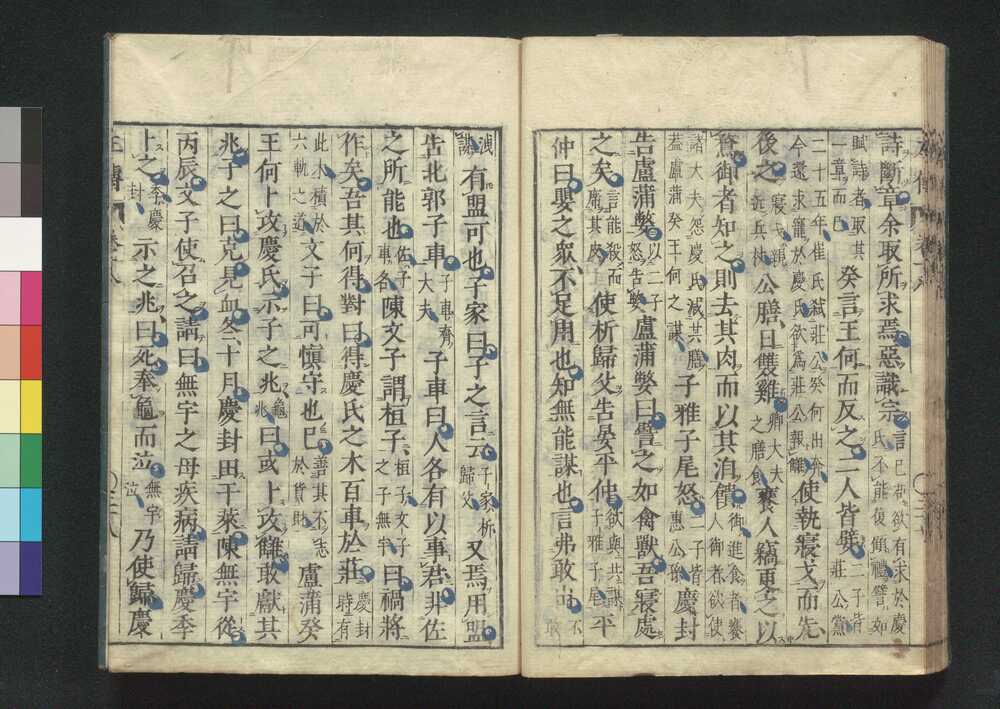 詩斷章余取所求焉惡識宗言己苟欲有求於慶氏不能復顧禮譬如
賦詩者取其一章而已癸言王何而反之二人皆嬖二子皆莊公黨
二十五年崔氏弑莊公癸何出奔今還求寵於慶氏欲爲莊公報讎使執寢戈而先
後之寢戈親近兵杖公膳日雙雞卿大夫之膳食饔人竊更之以
鶩御者知之則去其肉而以其洎饋御進食者饔人御者欲使
諸大夫怨慶氏減其膳蓋盧蒲癸王何之謀子雅子尾怒二子皆惠公孫慶封
告盧蒲嫳以二子怒告嫳盧蒲嫳曰譬之如禽獸吾寢處
之矣言能殺而席其皮使析歸父告晏平仲欲與共謀子雅子尾平
仲曰嬰之衆不足用也知無能謀也言弗敢出不敢
洩謀有盟可也子家曰子之言云子家析歸父又焉用盟
告北郭子車子車齊大夫子車曰人各有以事君非佐
之所能也佐子車名陳文子謂桓子桓子文子之子無宇曰禍將
作矣吾其何得對曰得慶氏之木百車於莊慶封時有
此木積於六軌之道文子曰可愼守也已善其不志於貨財盧蒲癸
王何卜攻慶氏示子之兆龜兆曰或卜攻讎敢獻其
兆子之曰克見血冬十月慶封田于萊陳無宇從
丙辰文子使召之請曰無宇之母疾病請歸慶季
卜之季慶封示之兆曰死奉龜而泣無宇泣乃使歸慶